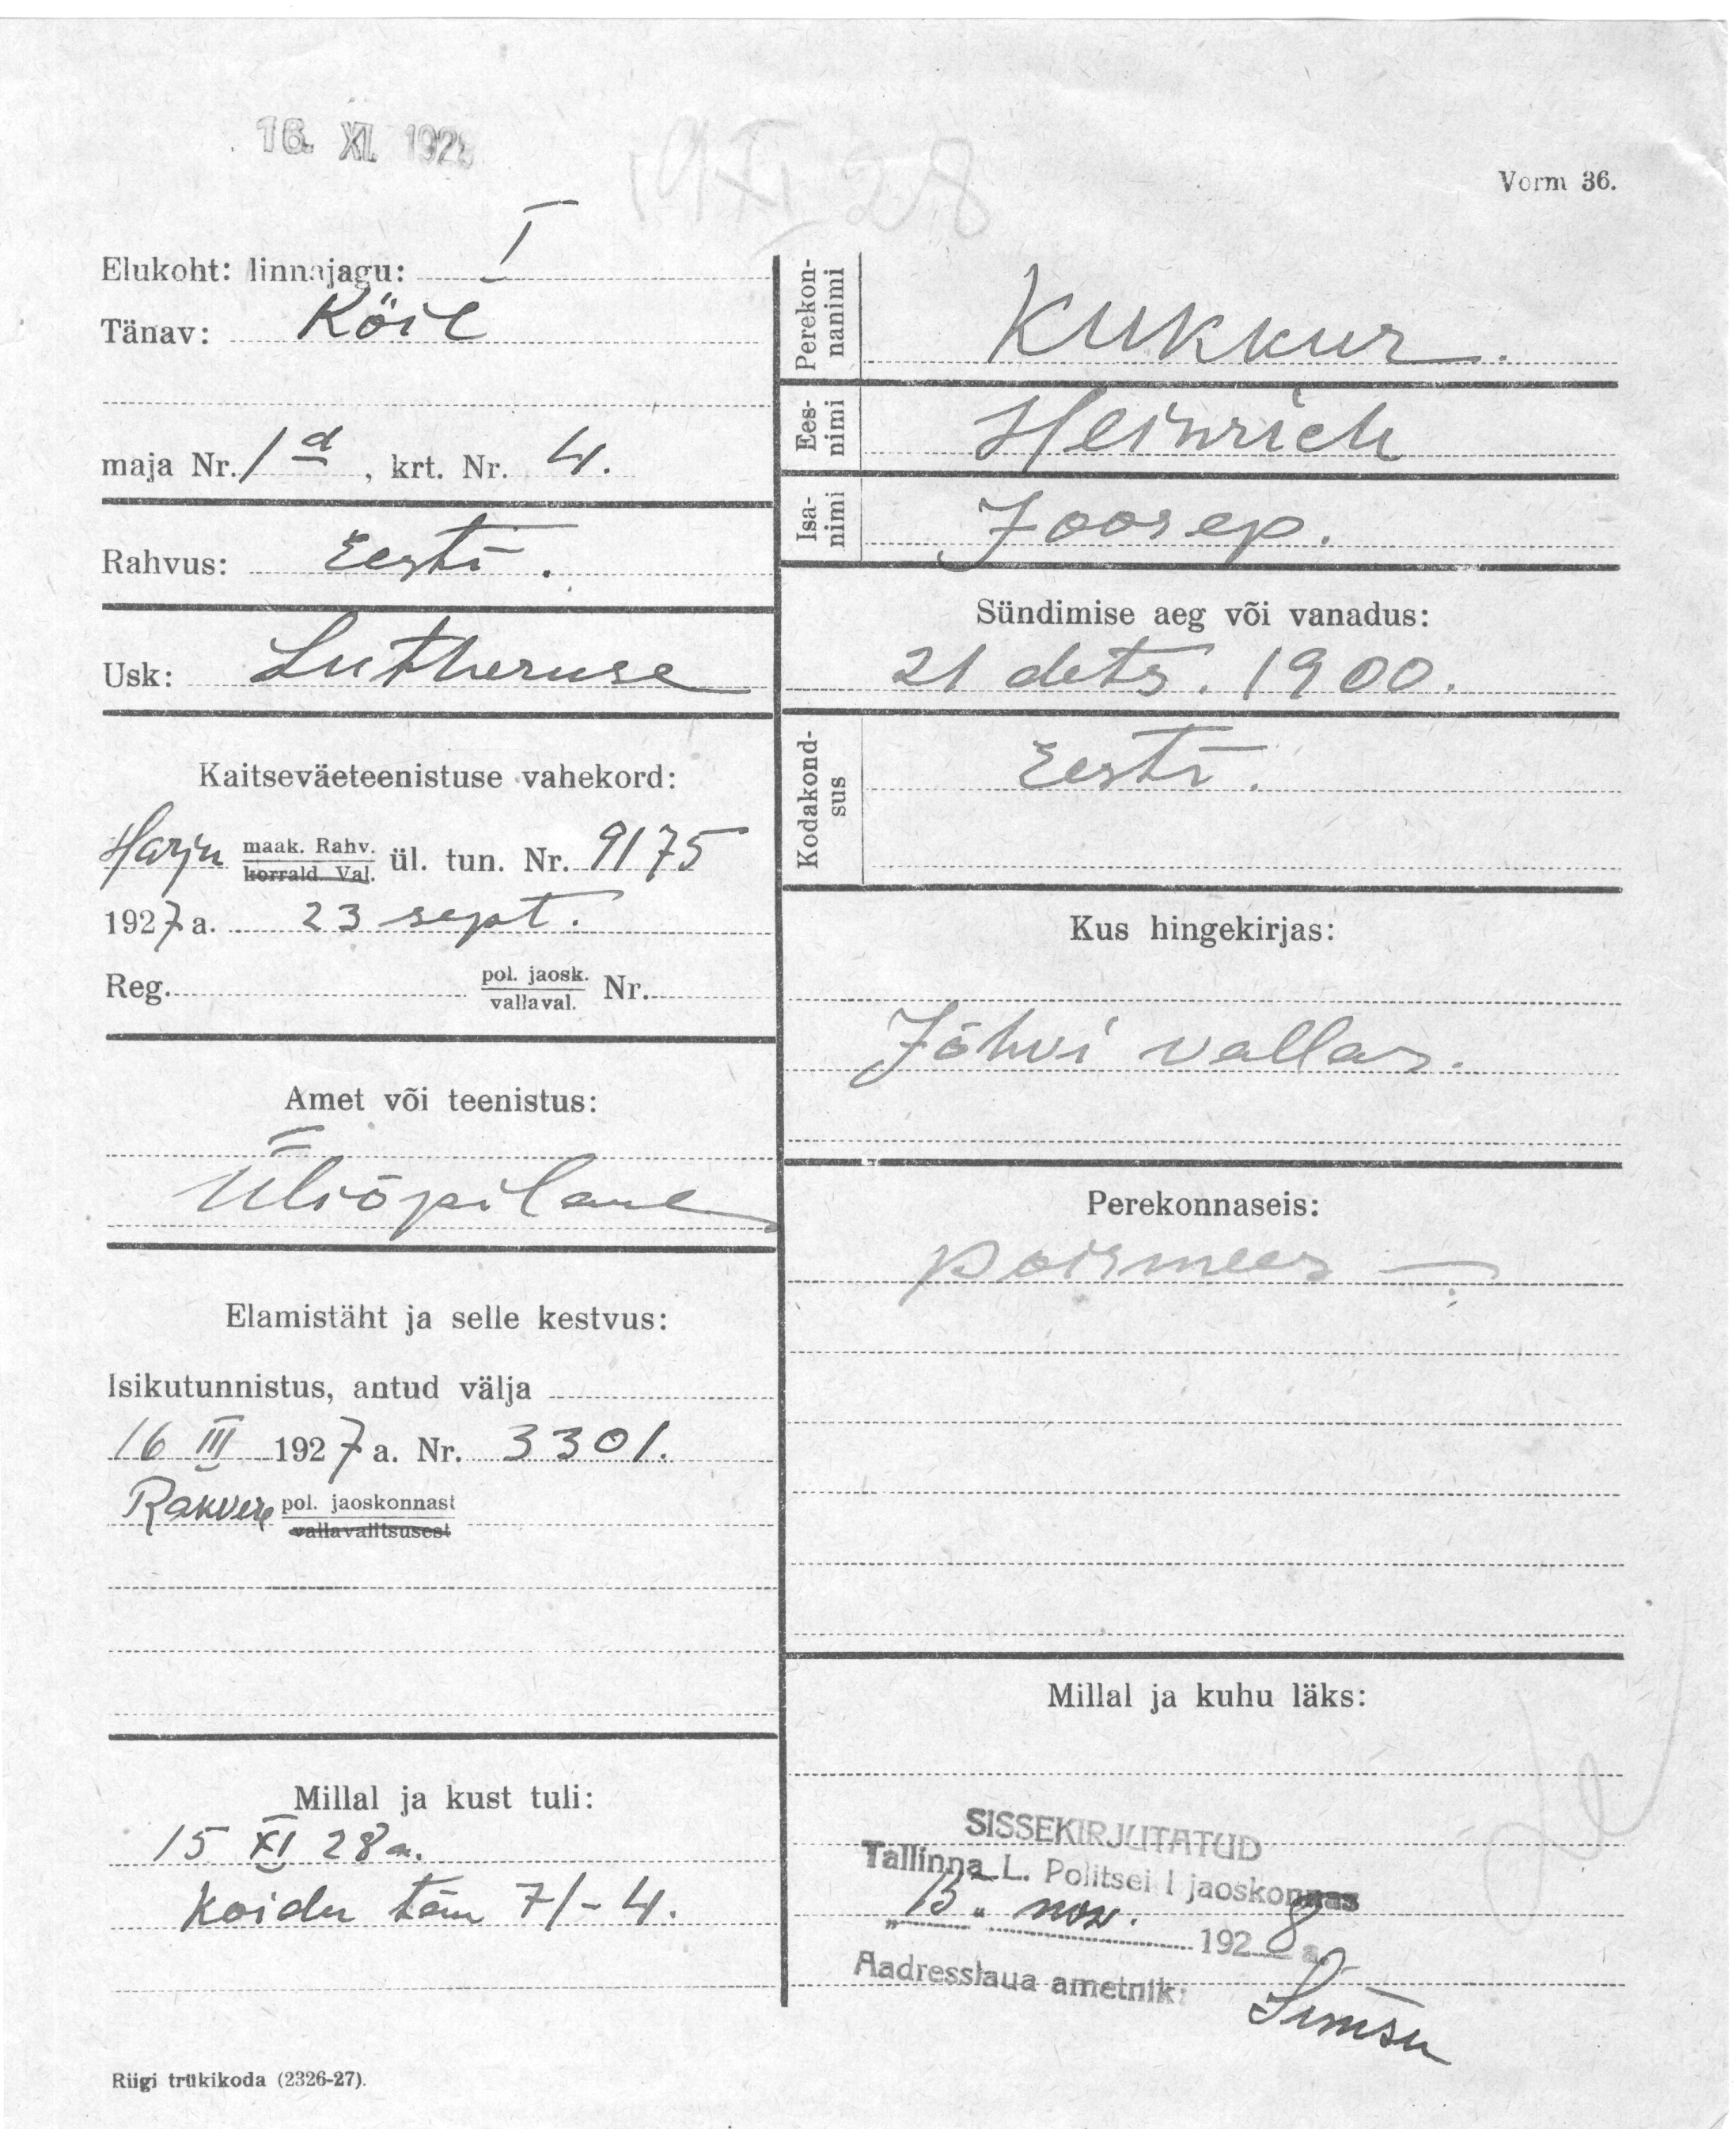 16. XI. 1928
19 XI 28
Vorm 36.
Elukoht: linnajagu: I
Tänav: Köie
maja Nr. 1 d, krt. Nr. 4.
Rahvus: Eesti.
Usk: Lutheruse
Kaitseväeteenistuse vahekord:
Harju maak. Rahv. korrald. Val. ül. tun. Nr. 9175
1927 a. 23 sept.
Reg. pol. jaosk. vallaval. Nr.
Amet või teenistus:
Üliõpilane
Elamistäht ja selle kestvus:
Isikutunnistus, antud välja
16 III 1927 a. Nr. 3301.
Rakvere pol. jaoskonnast
vallavalitsusest
Millal ja kust tuli:
15 XI 28 a.
Koidu tän 71-4.
Riigi trükikoda (2326-27).
Perekonnanimi Kukkur.
Eesnimi Heinrich
Isanimi Joosep.
Sündimise aeg või vanadus:
21 dets. 1900.
Kodakondsus Eesti.
Kus hingekirjas:
Jõhvi vallas.
Perekonnaseis:
poismees —
Millal ja kuhu läks:
SISSEKIRJUTATUD
Tallinna L. Politsei I jaoskonnas
„15" nov. 1928 a.
Aadresslaua ametnik: